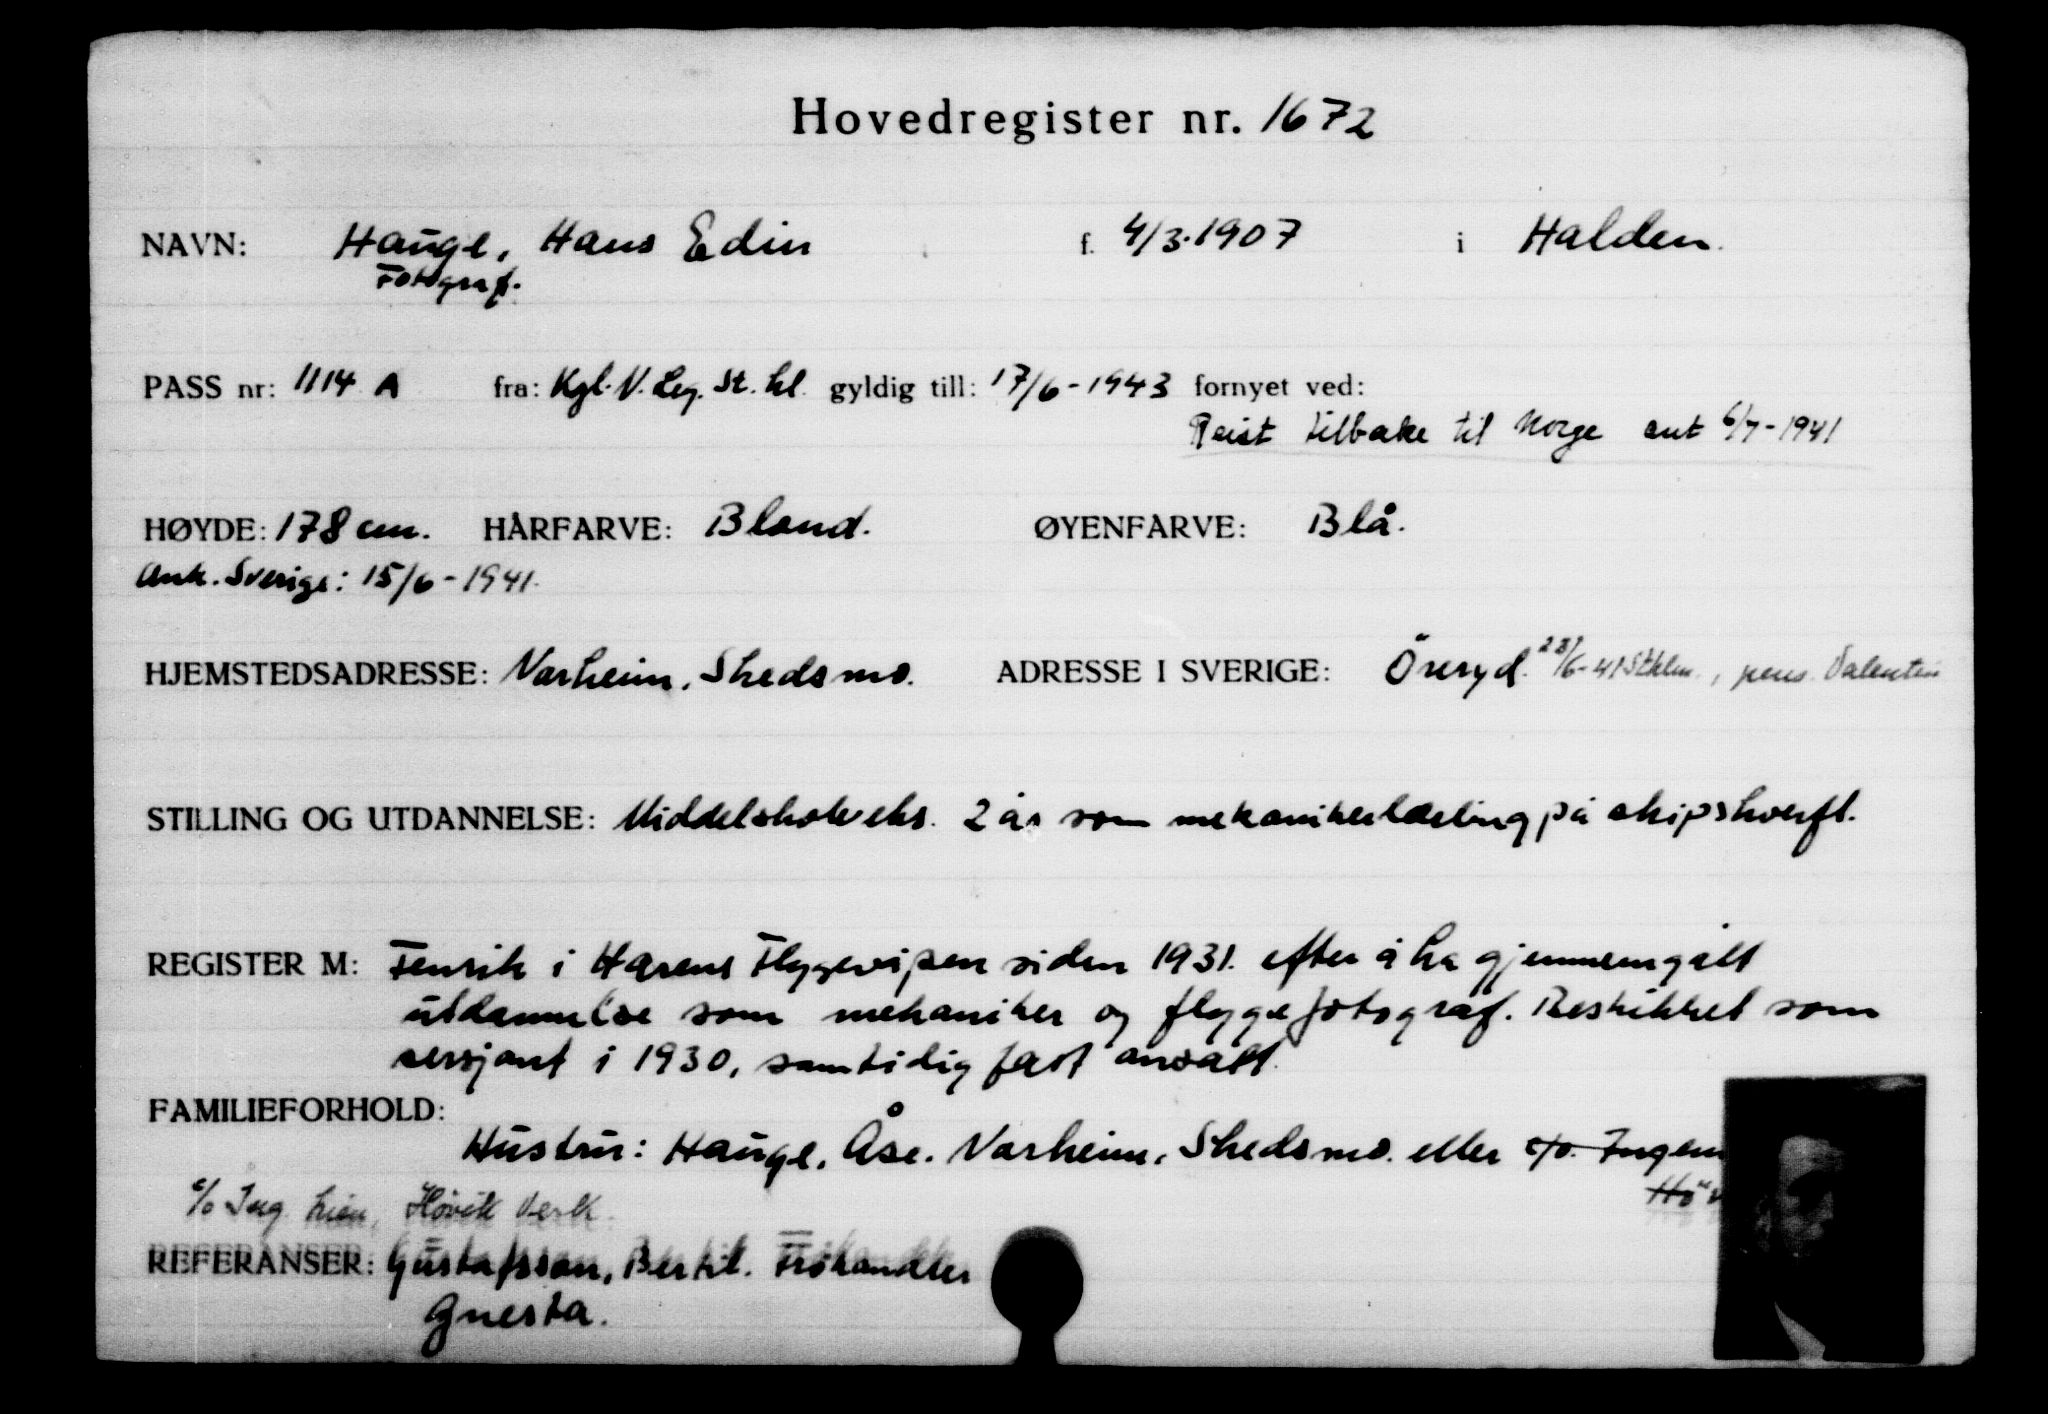 Hovedregister nr. 1672
NAVN: Hauge, Hans Edin f. 4/3-1907 i Halden.
Fotograf.
PASS nr: 1114 A fra: Kgl. N. Leg. St. hl. gyldig till: 17/6-1943 fornyet ved:
Reist tilbake til Norge 6/7-1941
HØYDE: 178 cm. HÅRFARVE: Blond. ØYENFARVE: Blå.
Ank. Sverige: 15/6-1941.
HJEMSTEDSADRESSE: Varheim, Skedsmo. ADRESSE I SVERIGE: Öreryd. 28/6-41 Sthlm., pens. Valentin
STILLING OG UTDANNELSE: Middelskoleeks. 2 år som mekanikerlærling på skipshverft.
REGISTER M: Fenrik i Hærens Flyggevåpen siden 1931. efter å ha gjennemgått
utdannelse som mekaniker og flyggefotograf. Beskikket som
sersjant i 1930, samtidig fast ansatt.
FAMILIEFORHOLD:
Hustru: Hauge, Åse. Varheim, Skedsmo. eller c/o. Ingeni
c/o Ing. Lien, Høvik Verk.
REFERANSER: Gustafsson, Bertil. Frøhandler
Gnesta.